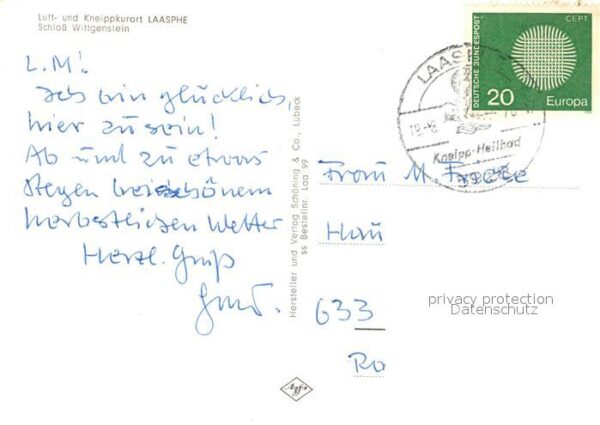 Luft- und Kneippkurort LAASPHE
Schloß Wittgenstein
L.M!
Ich bin glücklich,
hier zu sein!
Ab und zu etwas
Regen bei schönem
herbstlichen Wetter
Herzl. Gruß
Hersteller und Verlag Schöning & Co., Lübeck
ss Bestellnr. Laa 99
DEUTSCHE BUNDESPOST
CEPT
20
Europa
LAAS
18-8
Kneipp-Heilbad
Frau M.
633
privacy protection
Datenschutz